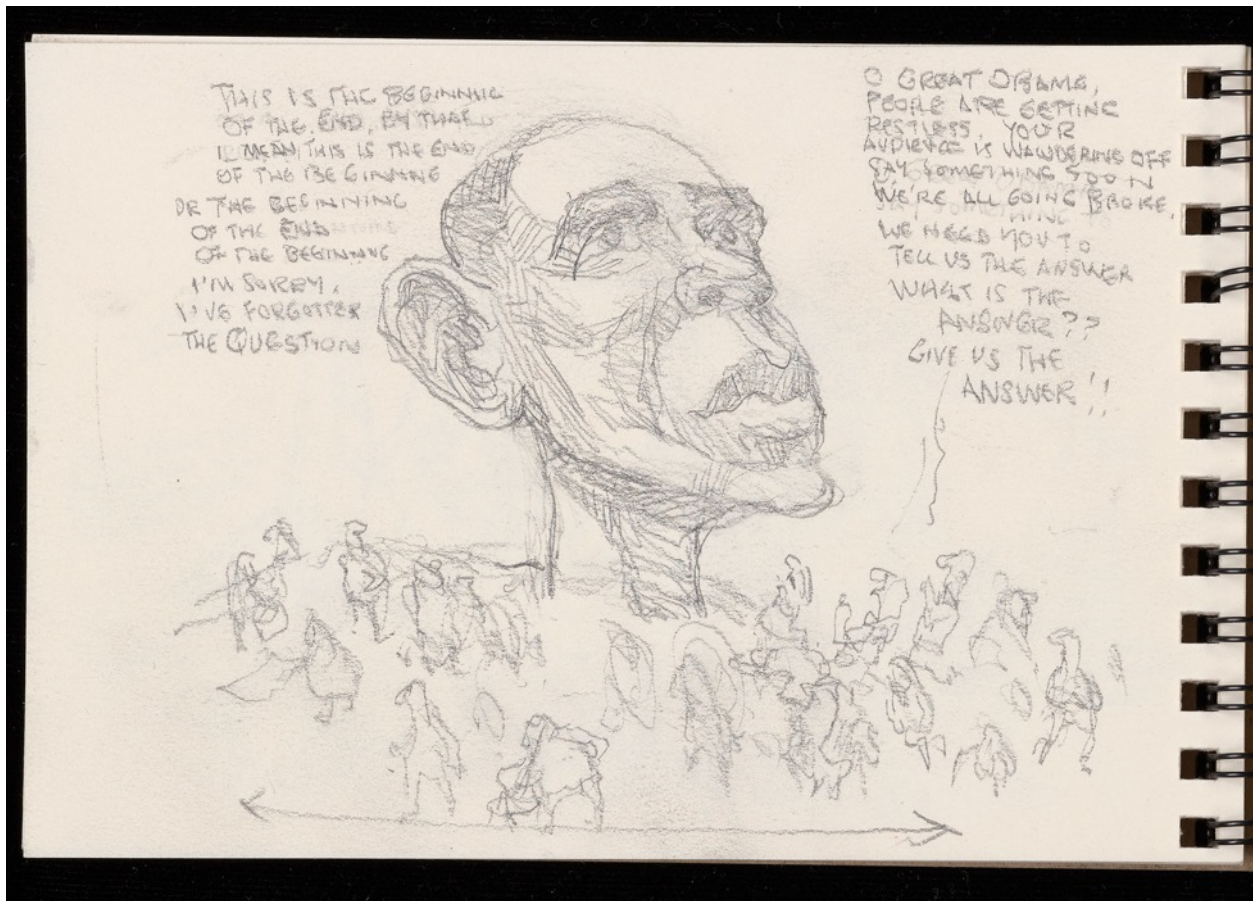 THIS IS THE BEGINNING
OF THE END, BY THAT
I MEAN THIS IS THE END
OF THE BEGINNING
OR THE BEGINNING
OF THE END
OF THE BEGINNING
I'M SORRY,
I'VE FORGOTTEN
THE QUESTION
O GREAT OBAMA,
PEOPLE ARE GETTING
RESTLESS, YOUR
AUDIENCE IS WANDERING OFF
SAY SOMETHING SOON
WE'RE ALL GOING BROKE,
WE NEED YOU TO
TELL US THE ANSWER
WHAT IS THE
ANSWER??
GIVE US THE
ANSWER!!